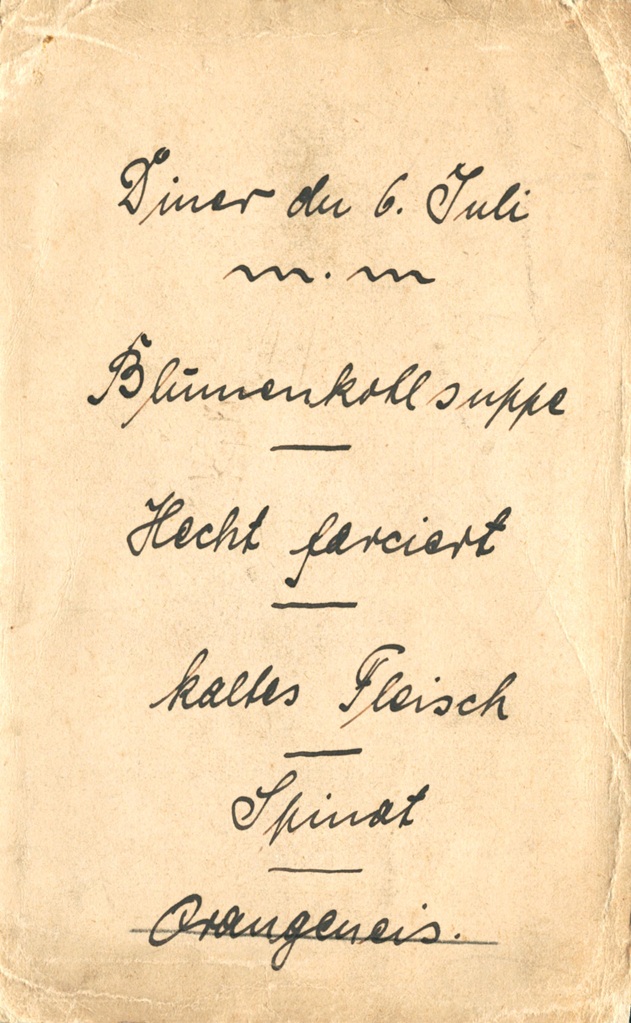 Diner du 6. Juli
Blumenkohlsuppe
Hecht farciert
kaltes Fleisch
Spinat
Orangeneis.